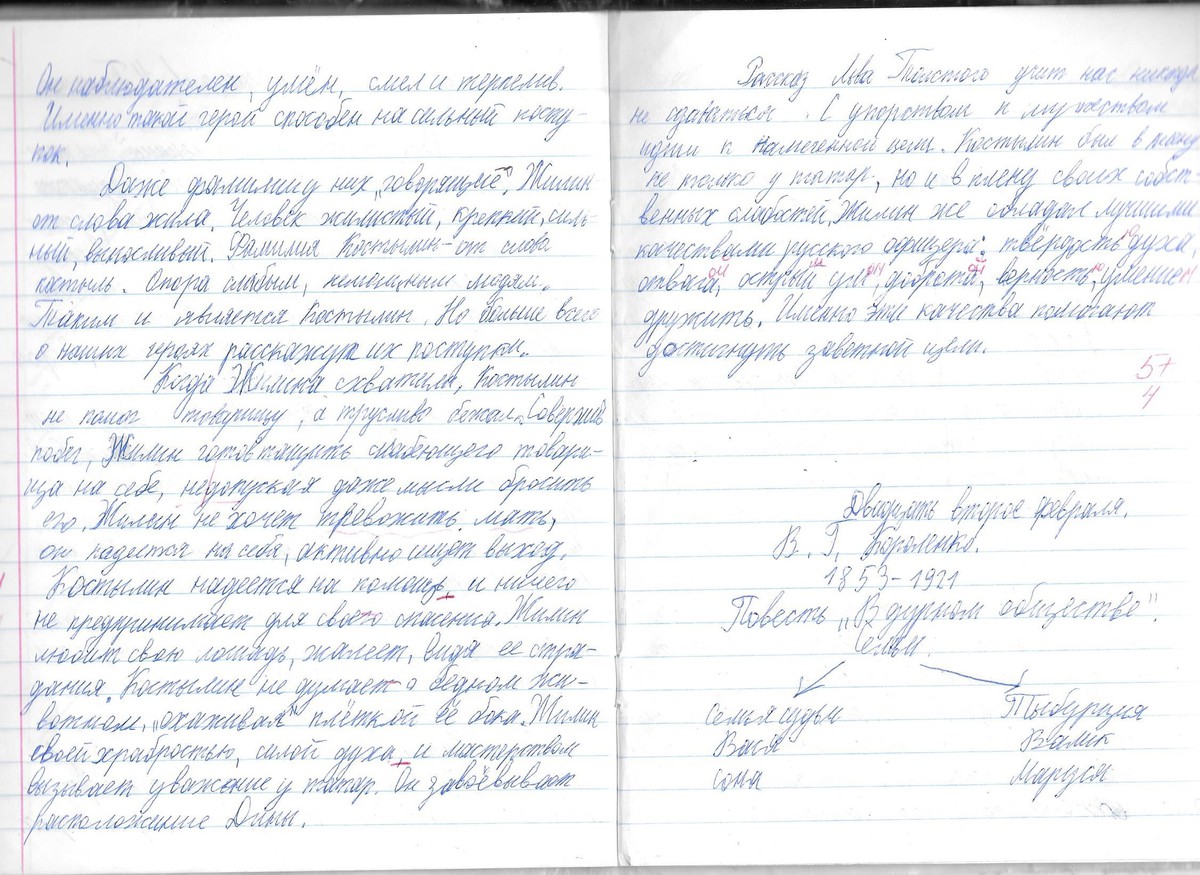 Он наблюдателен, умён, смел и терпелив.
Именно такой герой способен на сильный посту-
пок.
Даже фамилии у них „говорящие". Жилин
от слова жила. Человек жилистый, крепкий, силь-
ный, выносливый. Фамилия Костылин - от слова
костыль. Опора слабым, немощным людям.
Таким и является Костылин. Но больше всего
о наших героях расскажут их поступки.
Когда Жилина схватили, Костылин
не помог товарищу, а трусливо бежал. Совершив
побег, Жилин готов тащить слабеющего товари-
ща на себе, недопуская даже мысли бросить
его. Жилин не хочет тревожить мать,
он надеется на себя, активно ищет выход.
Костылин надеется на помощь, и ничего
не предпринимает для своего спасения. Жилин
любит свою лошадь, жалеет, видя её стра-
дания. Костылин не думает о бедном жи-
вотном, „охаживая" плёткой её бока. Жилин
своей храбростью, силой духа, и мастерством
вызывает уважение у татар. Он завоёвывает
расположение Дины.
Рассказ Льва Толстого учит нас никогда
не сдаваться. С упорством и мужеством
идти к намеченной цели. Костылин был в плену
не только у татар, но и в плену своих собст-
венных слабостей, Жилин же обладал лучшими
качествами русского офицера: твёрдостью духа,
отвагой, острый ум, доброта, верность, умением
дружить. Именно эти качества помогают
достигнуть заветной цели.
5+
4
Двадцать второе февраля.
В. Г. Короленко.
1853-1921
Повесть „В дурном обществе".
Семьи.
Семья судьи Тыбурция
Вася Валик
Соня Маруся